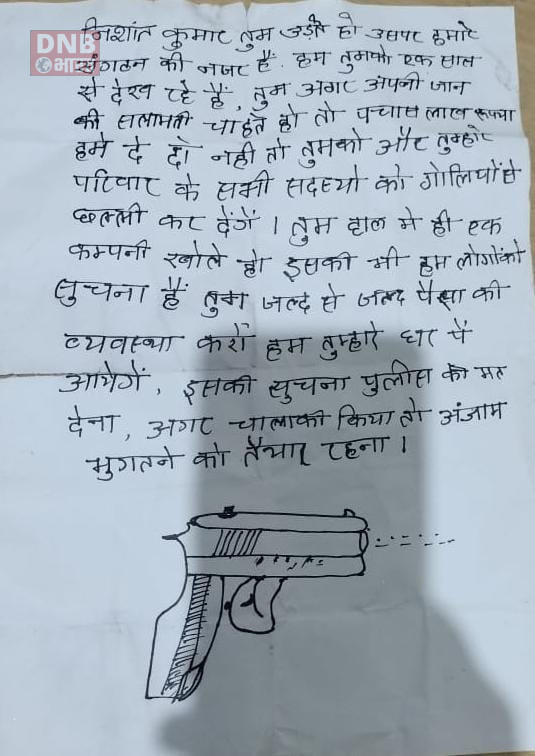 DNB
भारत
निशांत कुमार तुम उड़ते हो उसपर हमारे
संगठन की नजर हैं. हम तुमको एक साल
से देख रहे हैं, तुम अगर अपनी जान
की सलामती चाहते हो तो पचास लाख रूपया
हमे दे दो नही तो तुमको और तुम्हारे
परिवार के सभी सदस्यो को गोलियों से
छल्ली कर देंगें । तुम हाल मे ही एक
कम्पनी खोले हो इसकी भी हम लोगोंको
सुचना हैं तुम जल्द से जल्द पैसा की
व्यवस्था करों हम तुम्हारे घर पें
आयेगें, इसकी सुचना पुलीस को मत
देना, अगर चालाकी किया तो अंजाम
भुगतने को तैयार रहना ।